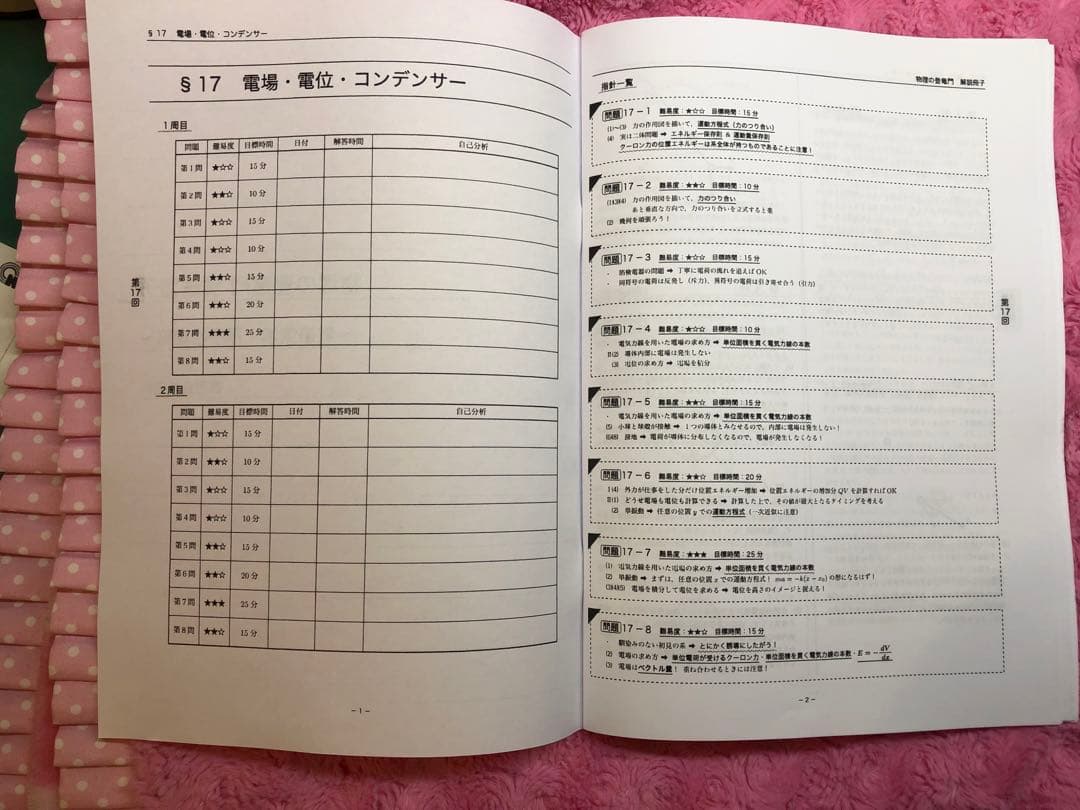 §17 電場・電位・コンデンサー
§17 電場・電位・コンデンサー
1周目
問題 難易度 目標時間 日付 解答時間 自己分析
第1問 ★☆☆ 15分
第2問 ★★☆ 10分
第3問 ★☆☆ 15分
第4問 ★☆☆ 10分
第5問 ★★☆ 15分
第6問 ★★☆ 20分
第7問 ★★★ 25分
第8問 ★★☆ 15分
第17回
2周目
問題 難易度 目標時間 日付 解答時間 自己分析
第1問 ★☆☆ 15分
第2問 ★★☆ 10分
第3問 ★☆☆ 15分
第4問 ★☆☆ 10分
第5問 ★★☆ 15分
第6問 ★★☆ 20分
第7問 ★★★ 25分
第8問 ★★☆ 15分
-1-
物理の登竜門 解説冊子
指針一覧
問題 17-1 難易度：★☆☆ 目標時間：15分
(1)～(3) 力の作用図を描いて、運動方程式（力のつり合い）
(4) 実は二体問題 ➡ エネルギー保存則 & 運動量保存則
クーロン力の位置エネルギーは系全体が持つものであることに注意！
問題 17-2 難易度：★★☆ 目標時間：10分
(1)(3)(4) 力の作用図を描いて、力のつり合い
糸と垂直な方向で、力のつり合いを立式すると楽
(2) 幾何を頑張ろう！
問題 17-3 難易度：★☆☆ 目標時間：15分
・ 箔検電器の問題 ➡ 丁寧に電荷の流れを追えばOK
・ 同符号の電荷は反発し（斥力）、異符号の電荷は引き寄せ合う（引力）
問題 17-4 難易度：★☆☆ 目標時間：10分
・ 電気力線を用いた電場の求め方 ➡ 単位面積を貫く電気力線の本数
II(2) 導体内部に電場は発生しない
(3) 電位の求め方 ➡ 電場を積分
第17回
問題 17-5 難易度：★★☆ 目標時間：15分
・ 電気力線を用いた電場の求め方 ➡ 単位面積を貫く電気力線の本数
(5) 小球と球殻が接触 ➡ 1つの導体とみなせるので、内部に電場は発生しない！
(6)(8) 接地 ➡ 電荷が導体に分布しなくなるので、電場が発生しなくなる！
問題 17-6 難易度：★★☆ 目標時間：20分
I(4) 外力が仕事をした分だけ位置エネルギー増加 ➡ 位置エネルギーの増加分QVを計算すればOK
II(1) どうせ電場も電位も計算できる ➡ 計算した上で、その値が最大となるタイミングを考える
(2) 単振動 ➡ 任意の位置yでの運動方程式（一次近似に注意）
問題 17-7 難易度：★★★ 目標時間：25分
(1) 電気力線を用いた電場の求め方 ➡ 単位面積を貫く電気力線の本数
(2) 単振動 ➡ まずは、任意の位置xでの運動方程式！ ma = -k(x - x₀) の形になるはず！
(3)(4)(5) 電場を積分して電位を求める ➡ 電位を高さのイメージと捉える！
問題 17-8 難易度：★★☆ 目標時間：15分
・ 馴染みのない初見の系 ➡ とにかく誘導にしたがう！
(2) 電場の求め方 ➡ 単位電荷が受けるクーロン力・単位面積を貫く電気力線の本数・E = -dV/dx
(3) 電場はベクトル量！ 重ね合わせるときには注意！
-2-